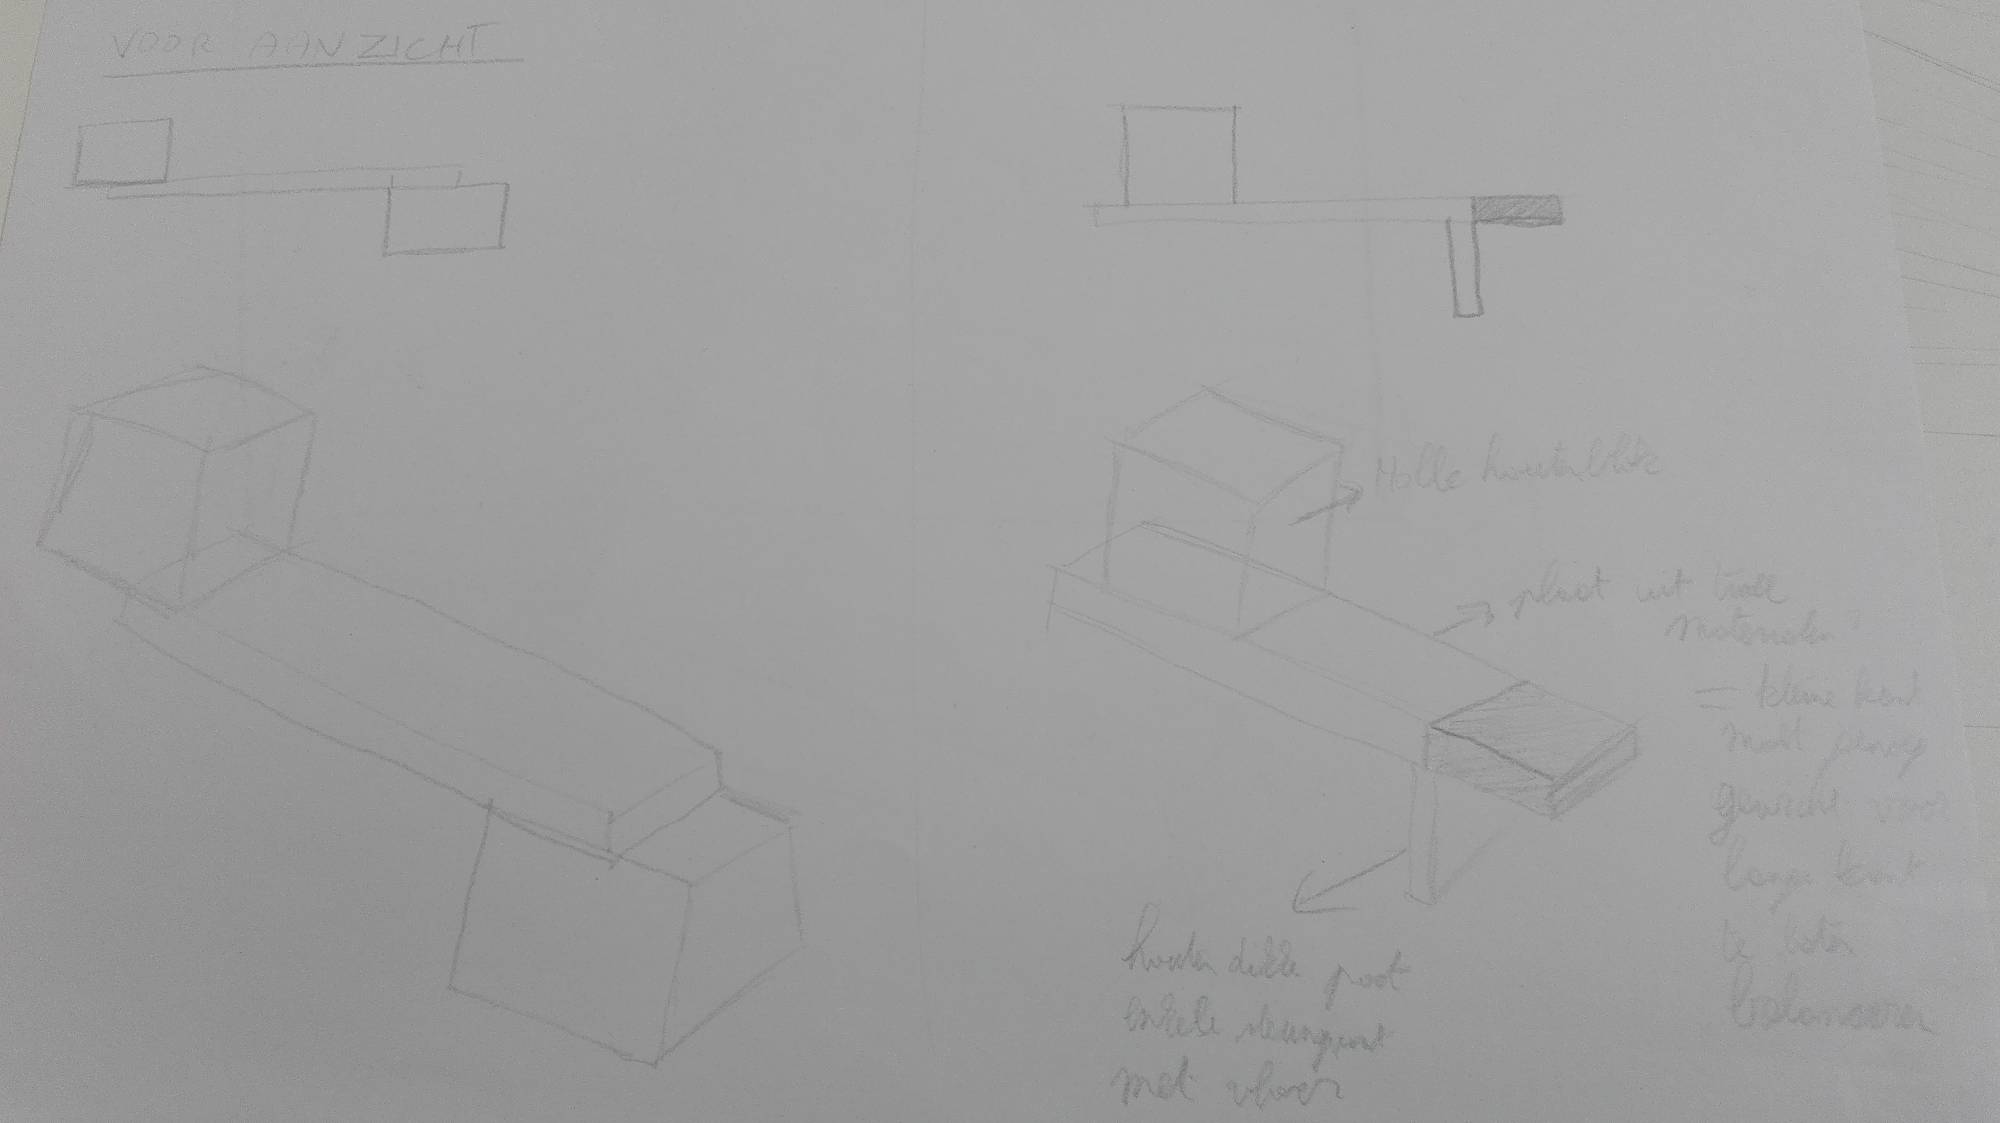 VOOR AANZICHT
Holle houten blok
plaat uit twee
materialen
= kleine kant
moet genoeg
gewicht voor
lange kant
te laten
balanceren
houten dikke poot
enkele steunpunt
met vloer